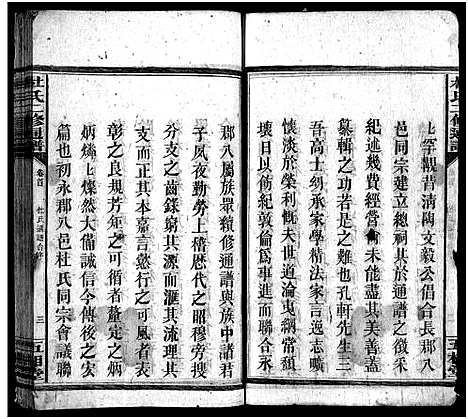 杜氏二修通譜
上罕覯昔清陶文毅公倡合長郡八
邑同宗建立總祠其於通譜之徵采
紀述幾費經營會未能盡其美善蓋
纂輯之功者是之難也孔軒先生三
吾高士紉承家學精法家言
懷淡於榮利慨夫世道淪夷綱常頹
壞日以飭紀敦倫爲事進而聯合永
郡八屬族衆纇修通譜與族中諸君
子夙夜勤勞上稽歷代之昭穆旁搜
分支之齒錄窮其源而滙其流理其
派而正其本嘉言懿行之可風者表
彰之良規芳年之可循者釐定之炳
炳烺烺上燦然大備誠信今傳後之宏
篇也初永郡八邑杜氏同宗會議聯
杜氏二修通譜
卷首
杜氏通譜合修
三